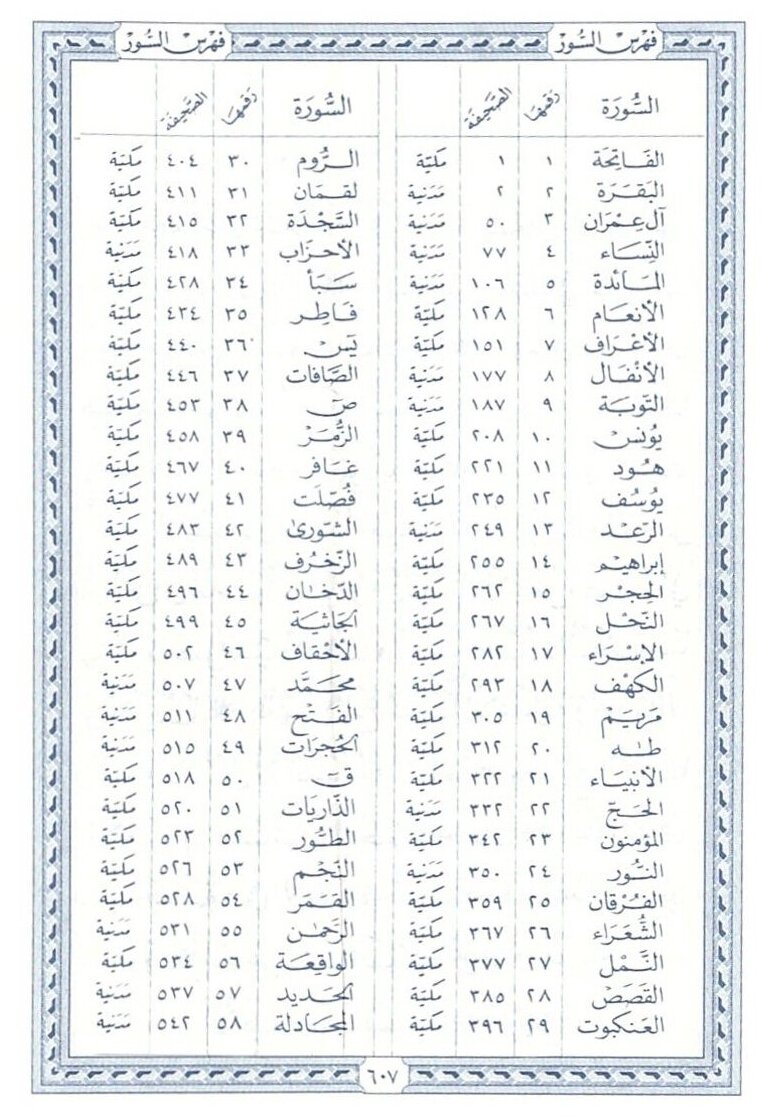 فهرس السور فهرس السور
السورة رقمها الصحيفة
الفاتحة ١ ١ مكية
البقرة ٢ ٢ مدنية
آل عمران ٣ ٥٠ مدنية
النساء ٤ ٧٧ مدنية
المائدة ٥ ١٠٦ مدنية
الأنعام ٦ ١٢٨ مكية
الأعراف ٧ ١٥١ مكية
الأنفال ٨ ١٧٧ مدنية
التوبة ٩ ١٨٧ مدنية
يونس ١٠ ٢٠٨ مكية
هود ١١ ٢٢١ مكية
يوسف ١٢ ٢٣٥ مكية
الرعد ١٣ ٢٤٩ مدنية
إبراهيم ١٤ ٢٥٥ مكية
الحجر ١٥ ٢٦٢ مكية
النحل ١٦ ٢٦٧ مكية
الإسراء ١٧ ٢٨٢ مكية
الكهف ١٨ ٢٩٣ مكية
مريم ١٩ ٣٠٥ مكية
طه ٢٠ ٣١٢ مكية
الأنبياء ٢١ ٣٢٢ مكية
الحج ٢٢ ٣٣٢ مدنية
المؤمنون ٢٣ ٣٤٢ مكية
النور ٢٤ ٣٥٠ مدنية
الفرقان ٢٥ ٣٥٩ مكية
الشعراء ٢٦ ٣٦٧ مكية
النمل ٢٧ ٣٧٧ مكية
القصص ٢٨ ٣٨٥ مكية
العنكبوت ٢٩ ٣٩٦ مكية
السورة رقمها الصحيفة
الروم ٣٠ ٤٠٤ مكية
لقمان ٣١ ٤١١ مكية
السجدة ٣٢ ٤١٥ مكية
الأحزاب ٣٣ ٤١٨ مدنية
سبأ ٣٤ ٤٢٨ مكية
فاطر ٣٥ ٤٣٤ مكية
يس ٣٦ ٤٤٠ مكية
الصافات ٣٧ ٤٤٦ مكية
ص ٣٨ ٤٥٣ مكية
الزمر ٣٩ ٤٥٨ مكية
غافر ٤٠ ٤٦٧ مكية
فصلت ٤١ ٤٧٧ مكية
الشورى ٤٢ ٤٨٣ مكية
الزخرف ٤٣ ٤٨٩ مكية
الدخان ٤٤ ٤٩٦ مكية
الجاثية ٤٥ ٤٩٩ مكية
الأحقاف ٤٦ ٥٠٢ مكية
محمد ٤٧ ٥٠٧ مدنية
الفتح ٤٨ ٥١١ مدنية
الحجرات ٤٩ ٥١٥ مدنية
ق ٥٠ ٥١٨ مكية
الذاريات ٥١ ٥٢٠ مكية
الطور ٥٢ ٥٢٣ مكية
النجم ٥٣ ٥٢٦ مكية
القمر ٥٤ ٥٢٨ مكية
الرحمن ٥٥ ٥٣١ مدنية
الواقعة ٥٦ ٥٣٤ مكية
الحديد ٥٧ ٥٣٧ مدنية
المجادلة ٥٨ ٥٤٢ مدنية
٦٠٧